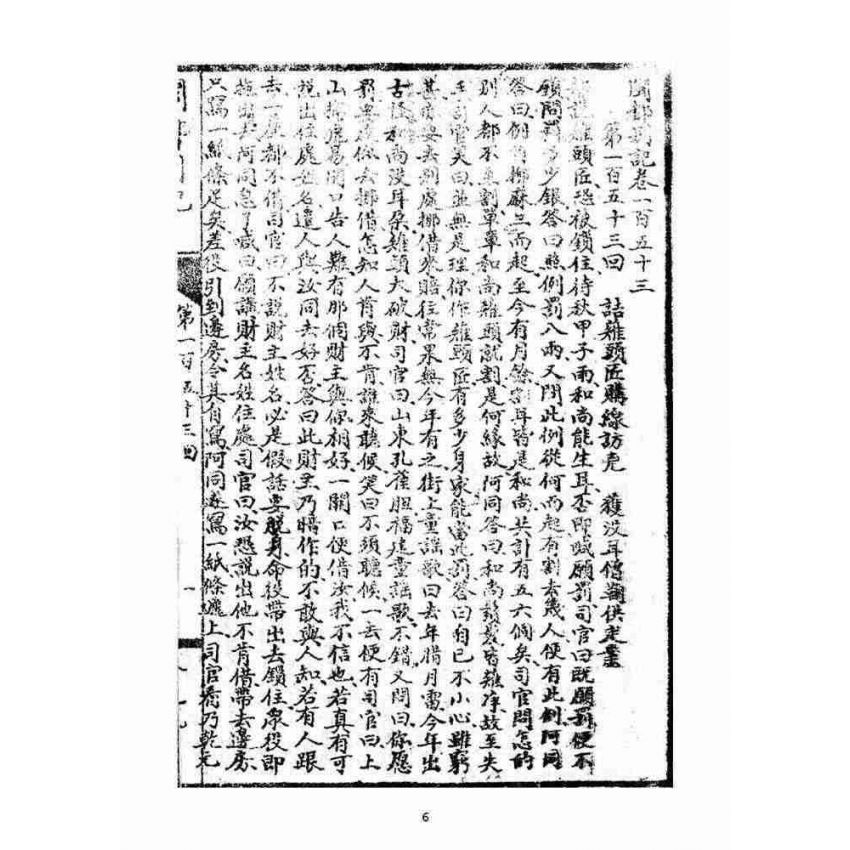 閩都別記卷一百五十三
第一百五十三回 詰薙頭匠購線訪兇 獲沒耳僧 供走
薙頭匠恐被鎖住待秋甲子雨和尚能生耳否即 願罰司官曰既願罰便不
願問罰多少銀答曰照例罰八兩又問此例從何而起有割去幾人便有此例阿同
答曰例 挪麻三而起至今有月餘割耳皆是和尚共計有五六個矣司官問怎的
別人都不 割單單和尚薙頭就割是何緣故阿同答曰和尚鬚髮皆薙 故至失
司官笑曰並無是理你作薙頭匠有多少身家能當此罰答曰自己不小心雖窮
甚 要去別處挪借來賠往常果無今年有之街上童謠歌曰去年臘月雷今年出
古怪和尚沒耳朵薙頭大破財司官曰山東孔雀胆福建童謠歌不錯又問曰你愿
罰要 你去挪借怎知人肯與不肯誰來聽候笑曰不須聽候一去便有司官曰上
山擒虎易開口告人難有那個財主與你相好一開口便借汝我不信也若真有可
說出住處姓名遣人與汝同去好否答曰此財主乃暗作的不敢與人知若有人跟
去一 都不借司官曰不說財主姓名必是假話要脫身命役帶出去鎖住眾役即
拖出去阿同急了喊曰願講財主名姓住處司官曰汝恐說出他不肯借帶去邊房
只寫一紙條足矣差役引到邊房令其自寫阿同 寫一紙條 上司官 乃乾元
第一百五十三回
一
6